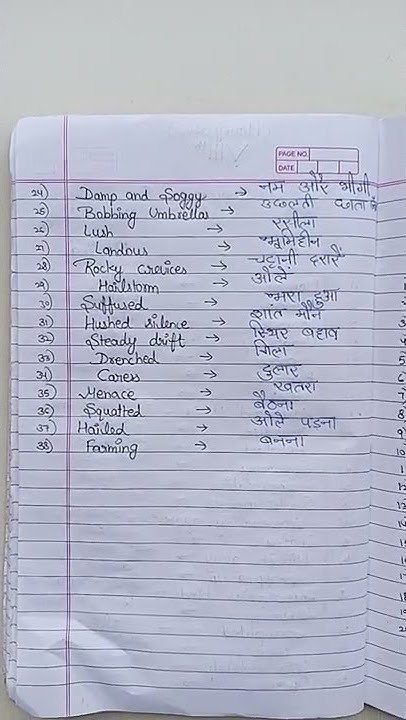 PAGE NO.
DATE
24) Damp and Soggy → नम और भीगी
25) Bobbing Umbrellas → उछलती छाता
26) Lush → रसीला
27) Landous → भूमिहीन
28) Rocky crevices → चट्टानी दरारें
29) Hailstorm → ओले
30) Suffused → भरा हुआ
31) Hushed silence → शांत मौन
32) Steady drift → स्थिर बहाव
33) Drenched → गिला
34) Caress → दुलार
35) Menace → खतरा
36) Squatted → बैठना
37) Hailed → ओले पड़ना
38) Farming → बनना